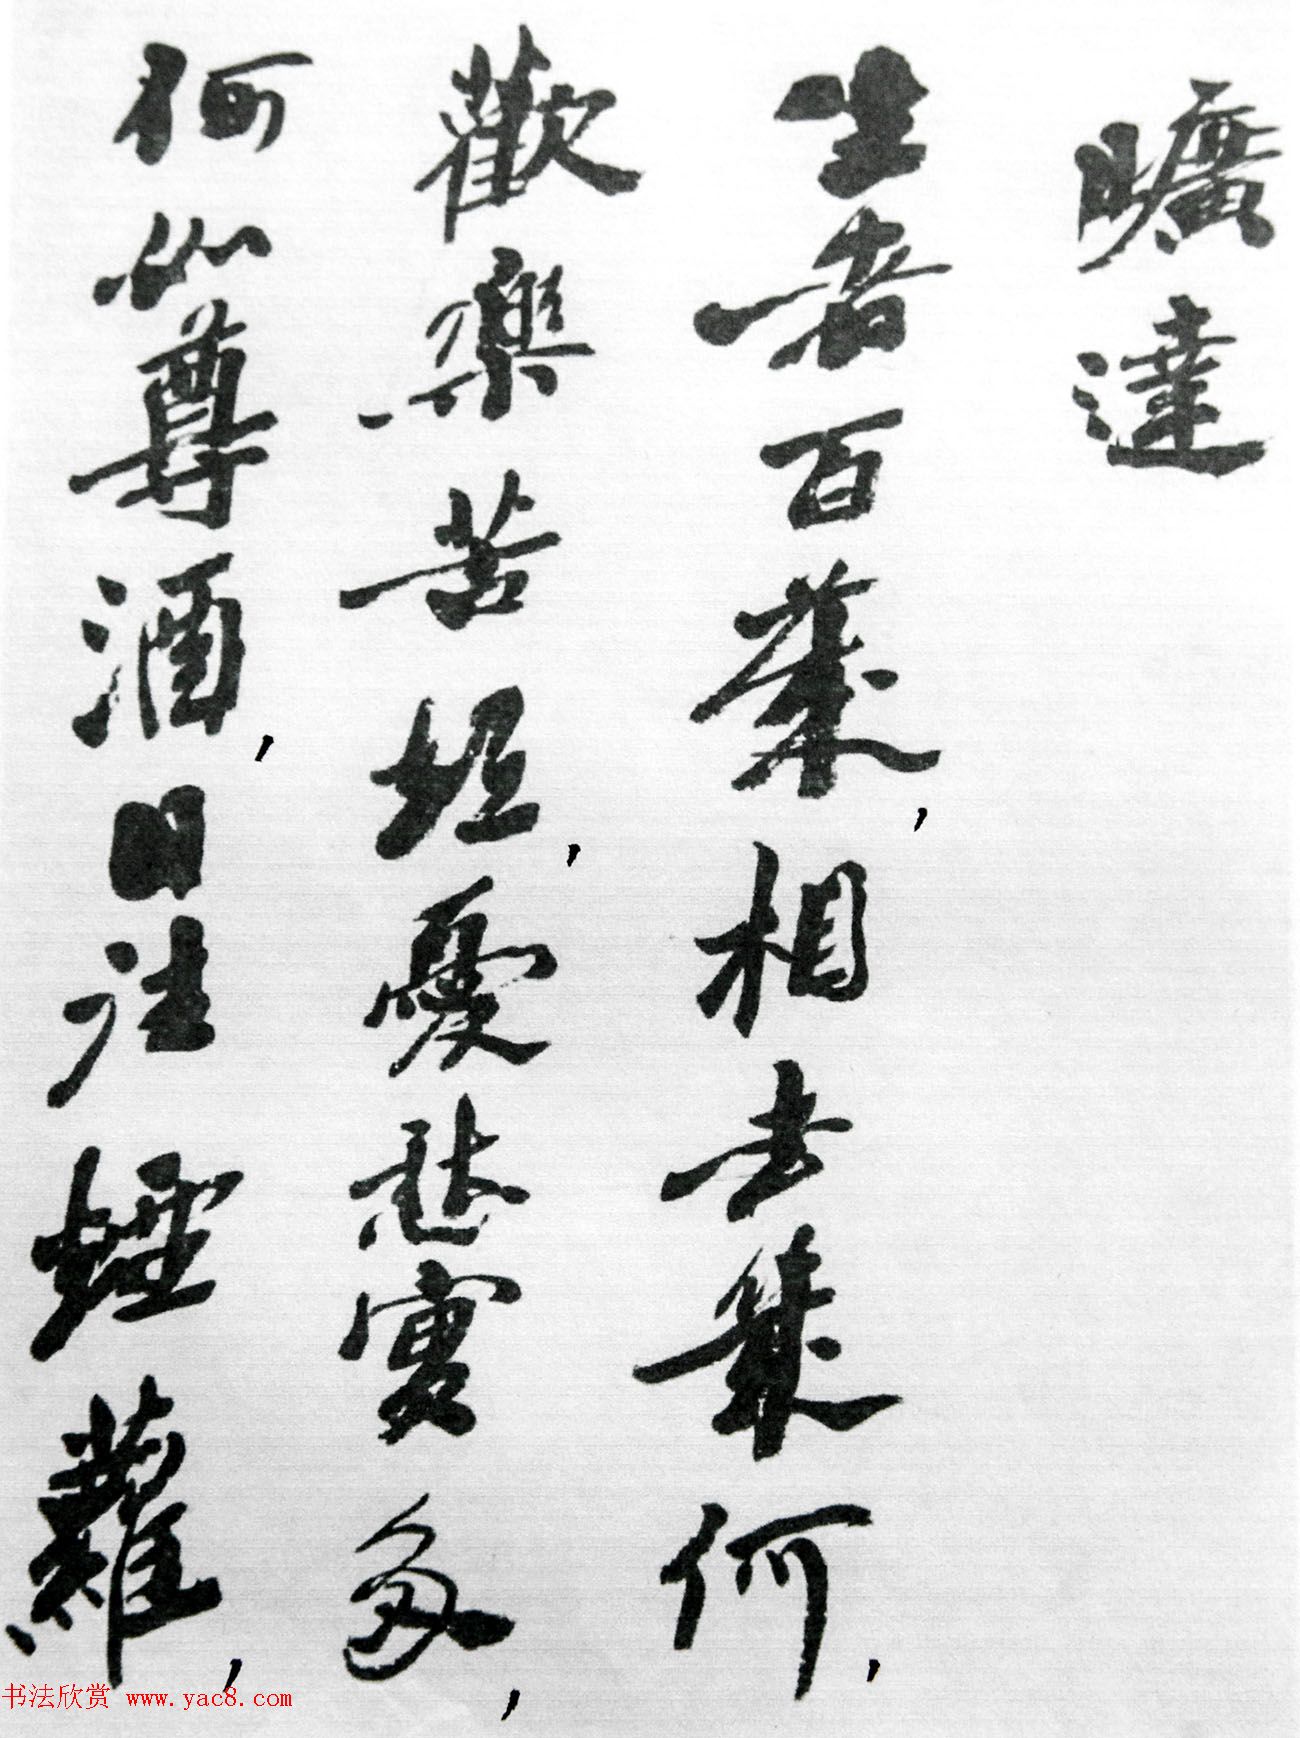 曠達
生者百歲，相去幾何，
歡樂苦短，憂愁實多，
何如尊酒，日往煙蘿，
书法欣赏 www.yac8.com